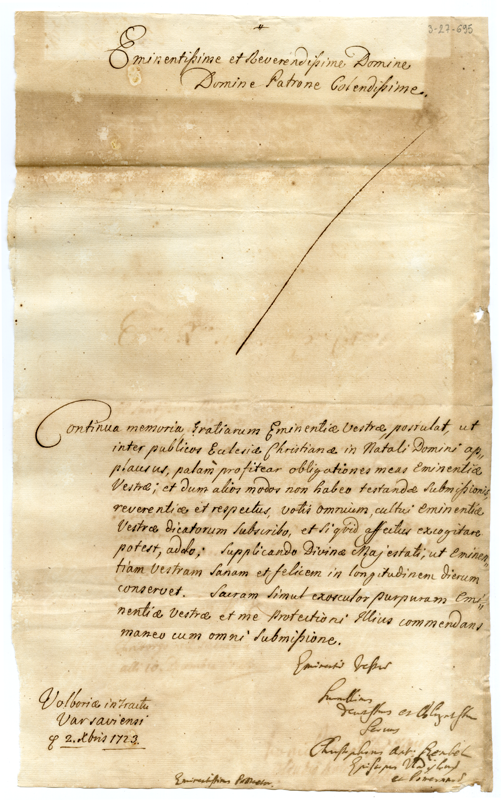 3-27-695
Eminentissime et Reverendissime Domine
Domine Patrone Colendissime.
Continua memoria Gratiarum Eminentiæ Vestræ postulat, ut
inter publicos Ecclesiæ Christianæ in Natali Domini ap,
plausus, palam profitear obligationes meas Eminentiæ
Vestræ; et dum alios modos non habeo testandæ Submissionis
reverentiæ et respectus, votis omnium, cultui Eminentiæ
Vestræ dicatorum subscribo, et siqvid affectus excogitare
potest, addo; Supplicando Divinæ Majestati, ut Eminen,
tiam Vestram Sanam et felicem in longitudinem dierum
conservet. Sacram simul exosculor purpuram Emi"
nentiæ Vestræ et me Protectioni Illius commendans
maneo cum omni Submissione.
Eminentiæ Vestræ
Humillimus
et
Servus
Volboriæ in tractu
Varsaviensi
2. Xbris 1723.
Eminentissimo